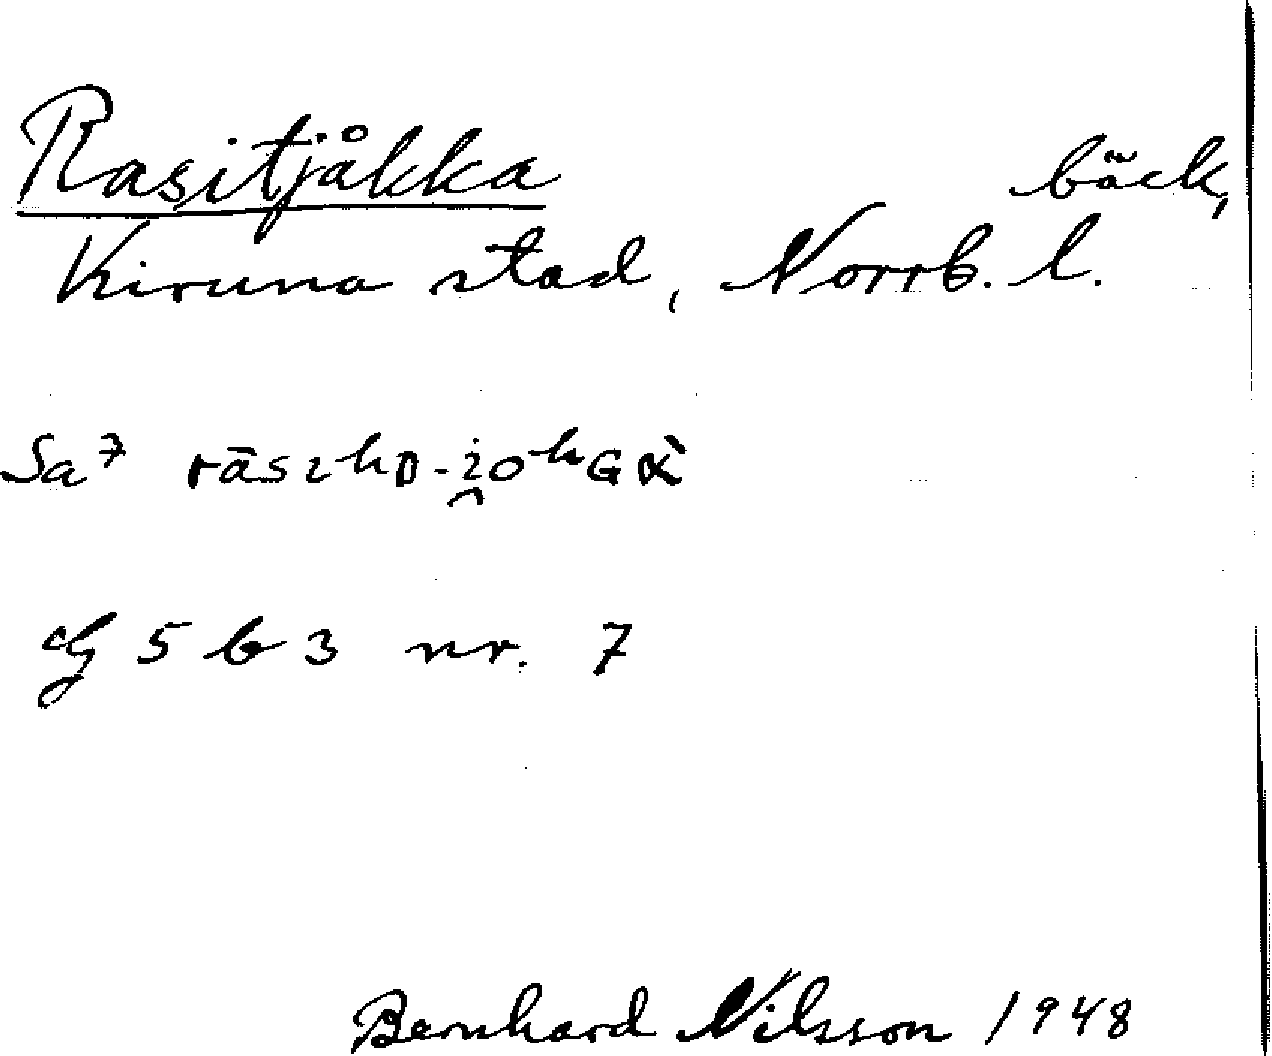 Rasitjåkka bäck,
Kiruna stad, Norrb. l.
Sa⁷
G 5 b 3 nr. 7
Bernhard Nilsson 1948